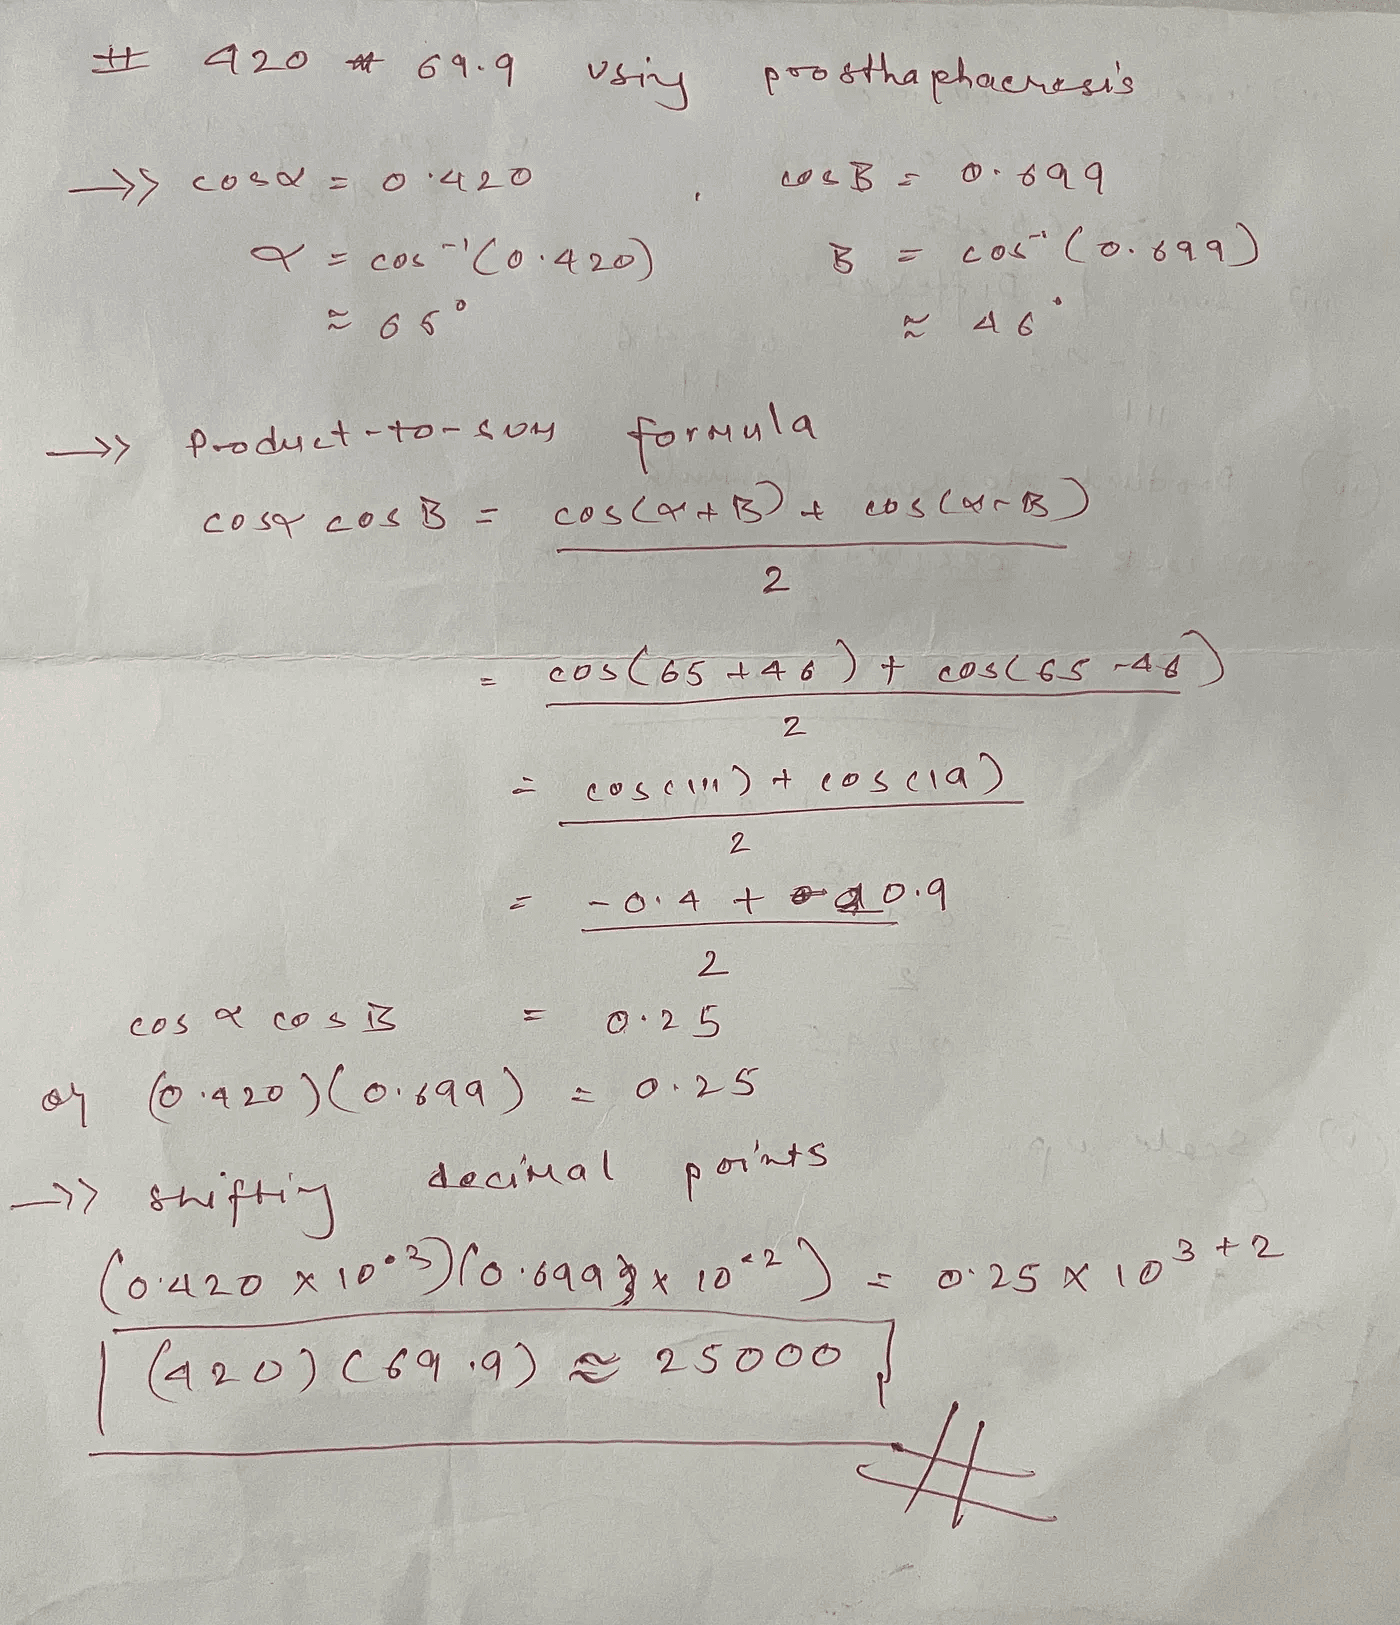 # 420 * 69.9 using prosthaphaeresis
→>> cosα = 0.420 , cosB = 0.699
α = cos⁻¹(0.420) B = cos⁻¹(0.699)
≈ 65° ≈ 46°
→>> Product-to-sum formula
cosα cosB = cos(α+B) + cos(α-B)
2
= cos(65+46) + cos(65-46)
2
= cos(111) + cos(19)
2
= -0.4 + 0.9
2
cosα cosB = 0.25
or (0.420)(0.699) = 0.25
→>> shifting decimal points
(0.420 × 10³)(0.699 × 10²) = 0.25 × 10³⁺²
(420)(69.9) ≈ 25000
#